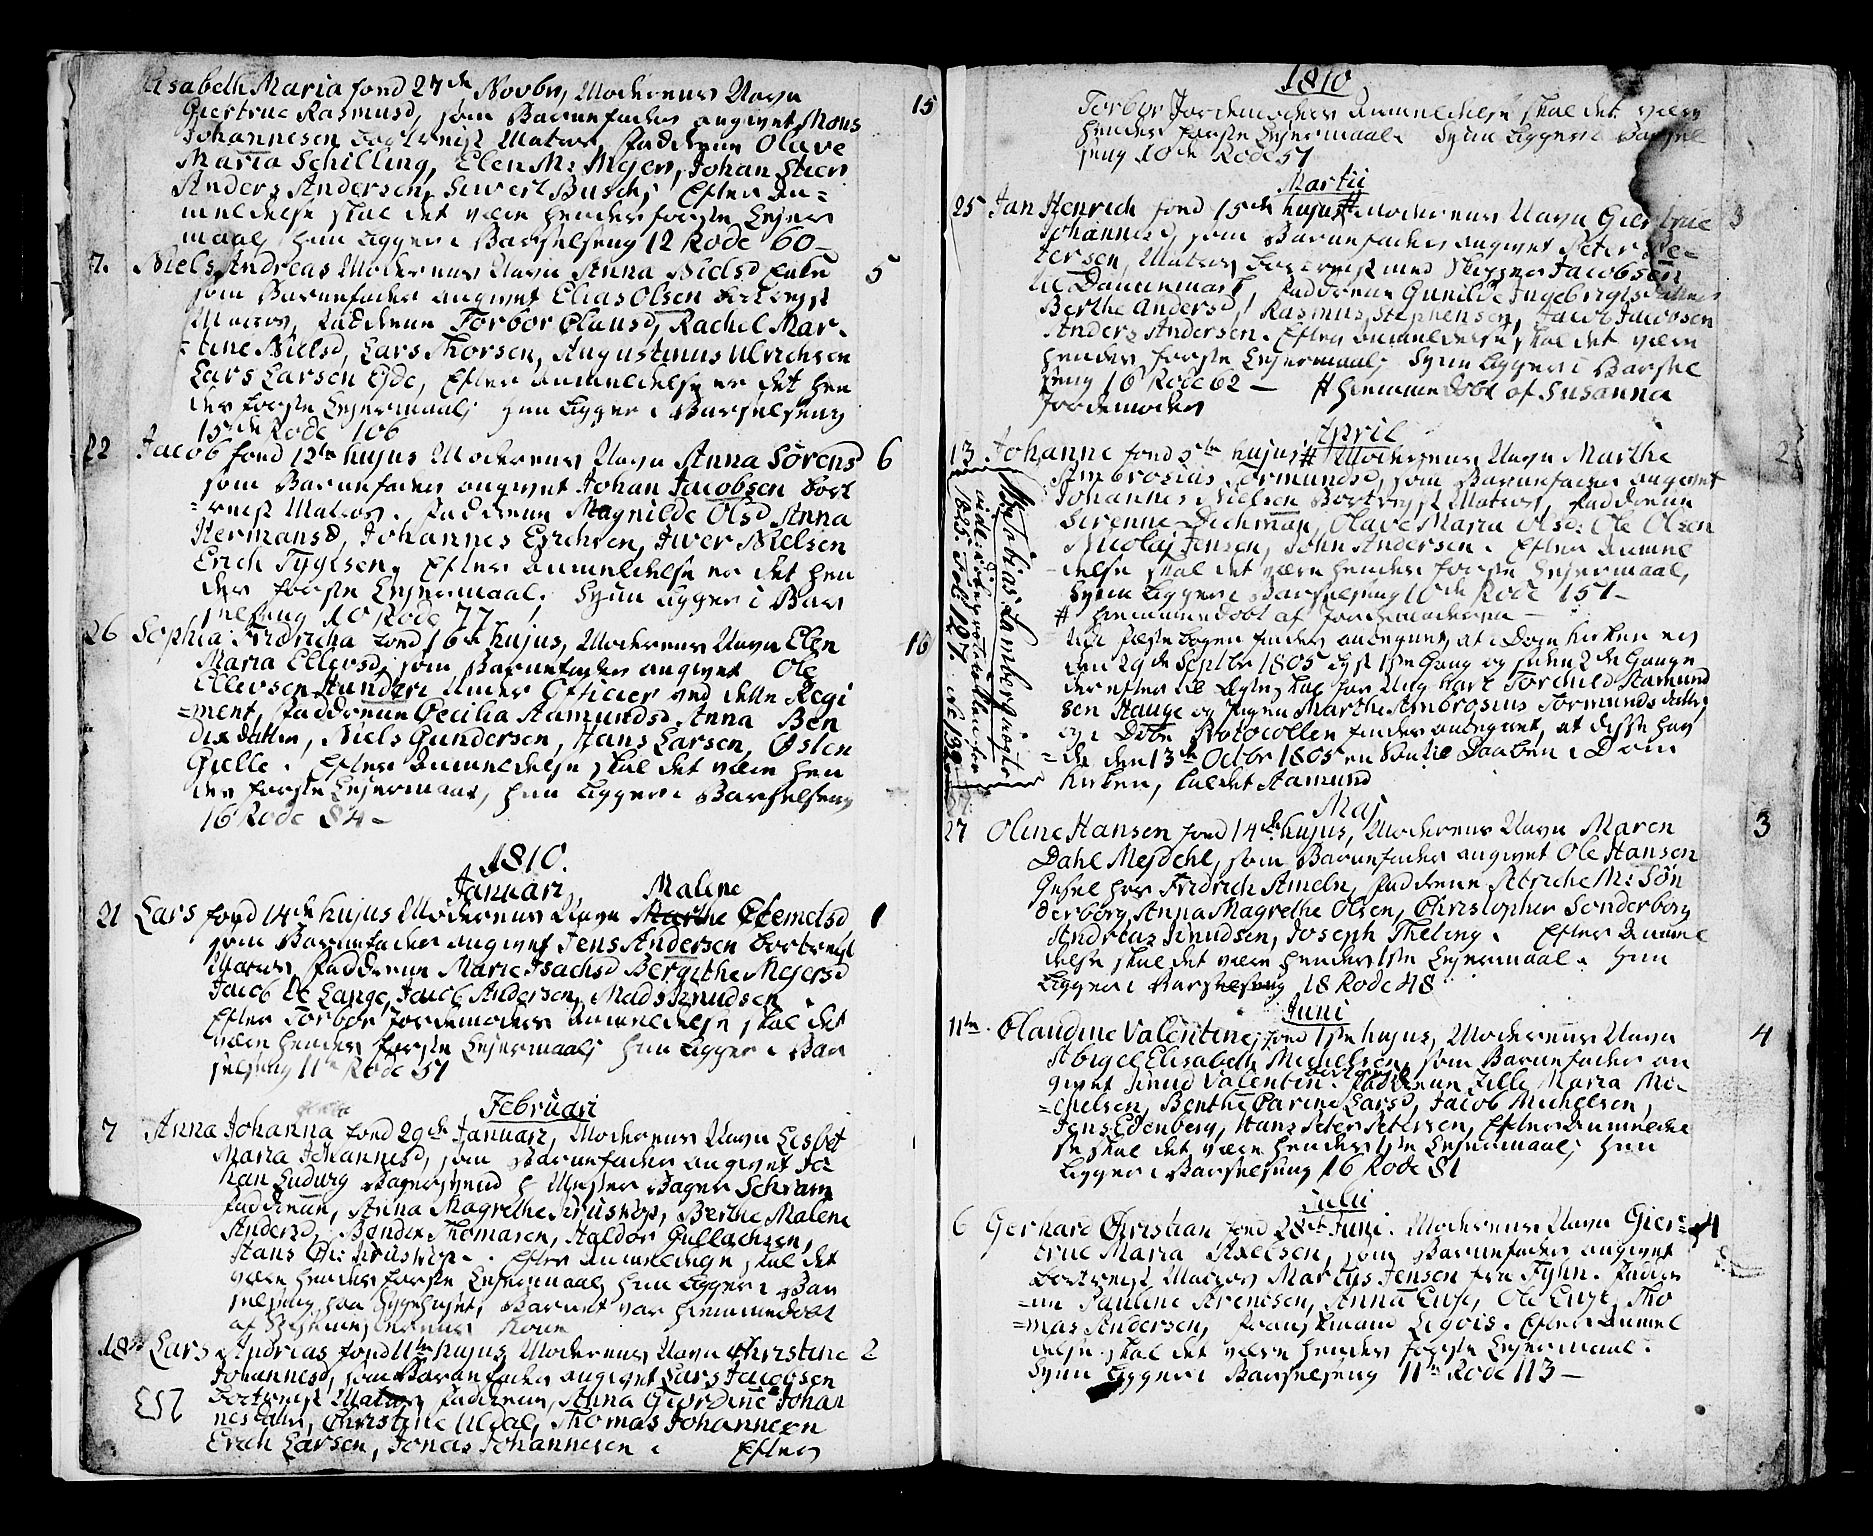 Elisabeth Maria fond 27de Novbr, Moderens Navn
Giertrue Rasmusd, som Barnefader angivet Mons 15
Johannesen bortreist Matros, Fadderne Olave
Maria Schilling, Elen M: Mejer, Johan Stier
Anders Andersen, Siwert Busch; Efter An=
meldelse skal det være hendes første Lejer
maal, hun ligger i Barselseng 12 Rode 60 -
7. Niels Andreas Moderens Navn Anna Nielsd Enke 5
som Barnefader angivet Elias Olsen bortrejst
Matros, Fadderne Torbor Olausd, Rachel Mar-
tine Nielsd, Lars Thorsen, Augustinus Ulrichsen
Lars Larsen Eyde, Efter Anmeldelse er det hen
des første Lejermaal; hun ligger i Barselseng
15de Rode 106
22 Jacob fond 12te hujus Moderens Navn Anna Sörensd 6
som Barnefader angivet Johan Jacobsen bort
=reist Matros. Fadderne Magnilde Olsd Anna
Hermansd, Johannes Erichsen, Iver Nielsen
Erich Tygesen. Efter Anmeldelse er det hen
des første Lejermaal. Hun ligger i Bar
selseng 10 Rode 77
26 Sophia Fridricha fond 16de hujus, Moderens Navn Elen 16
Maria Ellevsd, som Barnefader angivet Ole
Ellevsen Under Officier ved dette Regi
=ment, Fadderne Cecilia Aamundsd Anna Ben
dix datter, Niels Gundersen, Hans Larsen, Osten
Gielle. Efter Anmeldelse skal det være hen
des første Lejermaal, hun ligger i Barselseng
16 Rode 84 -
1810.
Januari Malene
21 Lars fond 14de hujus Moderens Navn Marthe Clemetsd 1
som Barnefader angivet Jens Andersen bortreist
Matros, Fadderne Marie Isachsd Bergithe Mejersd
Jacob de Lange, Jacob Andersen, Mads Knudsen
Efter Torbor Jordemoders Anmeldelse skal det
være hendes første Lejermaal; hun ligger i Bar
selseng 11te Rode 57
Februari
7 Anna Johanna fond 29de Januari, Moderens Navn Lisbet
Maria Johannesd, som Barnefader angivet Jo-
han Ludvig Bagersvend h Mester Bager Schram
Fadderne, Anna Magrethe Kruskop, Berthe Malene
Andersd, Bendix Thomasen, Haldor Gullachsen,
Hans Chr: Kruskop. Efter Anmeldelse skal det
være hendes første Lejermaal, hun ligger i Bar
selseng paa Sygehuset, Barnet var hiemmedöbt
af Kone
18de Lars Andreas fond 11te hujus Moderens Navn Christine 2
Johannesd, som Barnefader angivet Lars Jacobsen
bortreist Matros, Fadderne, Anna Giordine Johan
nesdatter, Christine Uldal, Thomas Johannesen
Erich Larsen, Jonas Johannesen. Efter
1810
Torbor Jordemoders Anmeldelse skal det være
hendes første Lejermaal. Hun ligger i Barsel
seng 10de Rode 57
Martii
25 Jan Henrich fond 15de hujus # Moderens Navn Giertrue 3
Johannesd, som Barnefader angivet Peter Pe-
tersen, Matros bortreist med Skipper Jacobsen
til Dannemark Fadderne Gunilde Ingebrigts datter
Berthe Andersd, Rasmus Stephensen, Jacob Jacobsen
Anders Andersen. Efter Anmeldelse skal det være
hendes første Lejermaal; Hun ligger i Barsel
seng 16 Rode 62 - # Hiemmedöbt af Susanna
Jordemoder
April
13 Johanne fond 5te hujus # Moderens Navn Marthe 2
Ambrosius Tormundsd, som Barnefader angivet
Johannes Nielsen bortreist Matros, Fadderne
Serenne Dichman, Olave Maria Olsd: Ole Olsen
Nicolaj Jensen, John Andersen. Efter Anmel
delse skal det være hendes første Lejermaal,
Hun ligger i Barselseng 10de Rode 151 -
# Hiemmedobt af Jordemoderen -
den 29de Septbr 1805 1ste Gang og siden 2de Gange
derefter til Ung Karl Tormod Aamund
sen Hauge og Pigen Marthe Ambrosius Tormunds datter,
og i Dobe Protocollen findes antegnet, at disse hav
=de den 13de Octbr 1805 en Son til Daaben i Dom
kirken, kaldet Aamund
Maj
27 Oline Hansen fond 14de hujus, Moderens Navn Maren 3
Dahl Mejdehl, som Barnefader angivet Ole Hansen
Gesel hos Fridrich Ameln, Fadderne M: Sön
derborg, Anna Magrethe Olsen, Christopher Sonderborg
Andreas Knudsen, Joseph Theting. Efter Anmel
delse skal det være hendes 1ste Lejermaal. Hun
ligger i Barselseng 18 Rode 48
Juni
11te Claudine Valentine, fond 1ste hujus, Moderens Navn 4
Abigel Elisabeth Michelsen, som Barnefader an
givet Knud Valentin. Fadderne Zille Maria Mi-
=chelsen, Benthe Carine Larsd, Jacob Michelsen,
Jens Edenberg, Hans Peter Petersen, Efter Anmeldel
se skal det være hendes 1ste Lejermaal; Hun
ligger i Barselseng 16 Rode 81
Julii
6 Gerhard Christian fond 28de Juni. Moderens Navn Gier- 4
true Maria Axelsen, som Barnefader angivet
bortreist Matros Marcus Jensen fra Fyhn. Fadder
=ne Pauline Arentsen, Anna Lyse, Ole Lyse, Tho
=mas Andersen, Legois. Efter Anmel
delse skal det være hendes første Lejermaal.
Hun ligger i Barselseng 11te Rode 113 -